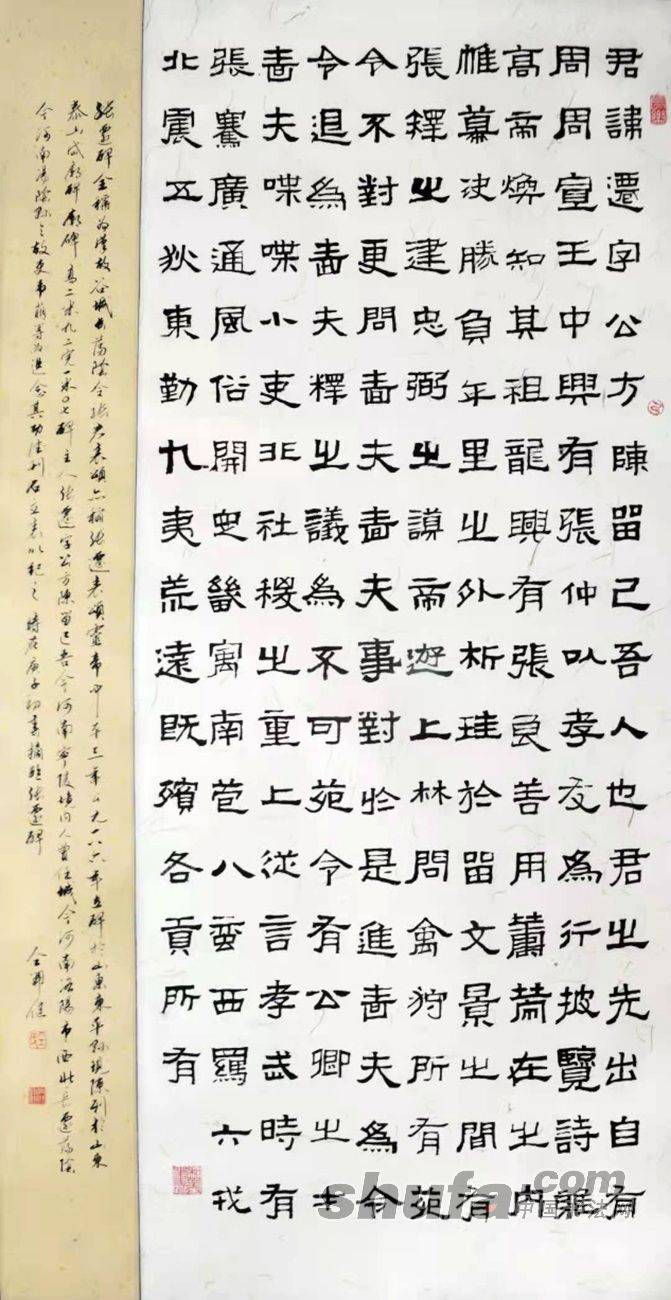 君諱遷字公方陳留己吾人也君之先出自有
周周宣王中興有張仲以孝友為行披覽詩雅
高帝煥知其祖龍興有張良善用籌策在之內
帷幕決勝負千里之外析珪於留文景之間有
張釋之建忠弼之謨帝遊上林問禽狩所有苑
令不對更問嗇夫嗇夫事對於是進嗇夫為令
令退為嗇夫釋之議為不可苑令有公卿之才
嗇夫喋喋小吏非社稷之重上從言孝武時有
張騫廣通風俗開定畿寓南苞八蠻西羈六戎
北震五狄東勤九夷荒遠既殯各貢所有
張遷碑全稱為漢故谷城長蕩陰令張君表頌亦稱張遷表頌靈帝中平三年公元一八六年立碑於山東東平縣現陳列於山東
泰山岱廟碑廊碑高二米九二寬一米〇七碑主人張遷字公方陳留己吾今河南寧陵境內人曾任城今河南洛陽市西北長遷蕩陰
今河南湯陰縣之故吏韋萌等為追念其功德刊石立表以紀之 時在庚子初春摘臨張遷碑
shufa.com
中国书法网